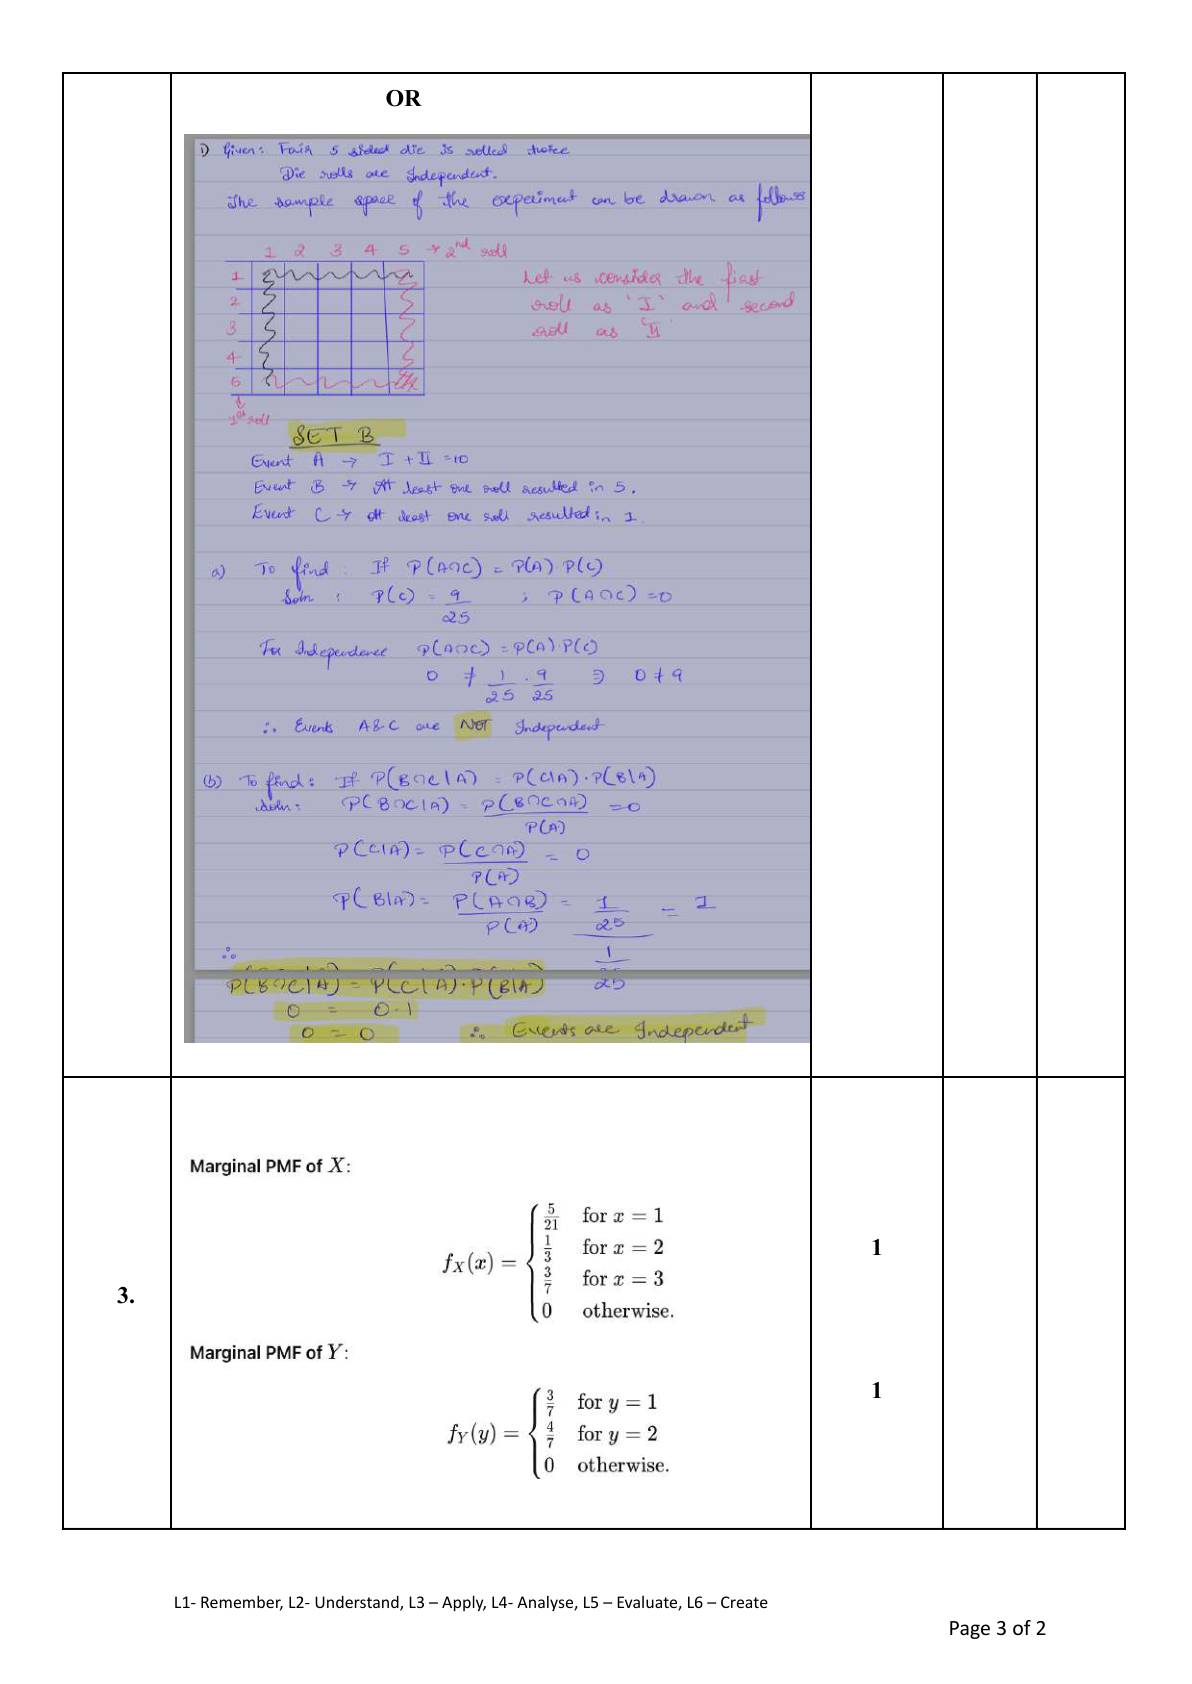 OR
1) Given: Fair 5 sided die is rolled twice
Die rolls are Independent.
The sample space of the experiment can be drawn as follows
1 2 3 4 5 → 2nd roll
1
2
3
4
5
1st roll
Let us consider the first
roll as 'I' and second
roll as 'II'
SET B
Event A → I + II = 10
Event B → At least one roll resulted in 5.
Event C → At least one roll resulted in 1.
a) To find : If P(A∩C) = P(A)·P(C)
Soln : P(C) = 9/25 ; P(A∩C) = 0
For Independence P(A∩C) = P(A)·P(C)
0 ≠ 1/25 · 9/25 ∋ 0 ≠ 9
∴ Events A&C are NOT Independent
(b) To find: If P(B∩C|A) = P(C|A)·P(B|A)
Soln: P(B∩C|A) = P(B∩C∩A)/P(A) = 0
P(C|A) = P(C∩A)/P(A) = 0
P(B|A) = P(A∩B)/P(A) = (1/25)/(1/25) = 1
∴
P(B∩C|A) = P(C|A)·P(B|A)
0 = 0·1
0 = 0 ∴ Events are Independent
3.
Marginal PMF of X:
f_X(x) = { 5/21 for x = 1
1/3 for x = 2
3/7 for x = 3
0 otherwise.
1
Marginal PMF of Y:
f_Y(y) = { 3/7 for y = 1
4/7 for y = 2
0 otherwise.
1
L1- Remember, L2- Understand, L3 – Apply, L4- Analyse, L5 – Evaluate, L6 – Create
Page 3 of 2